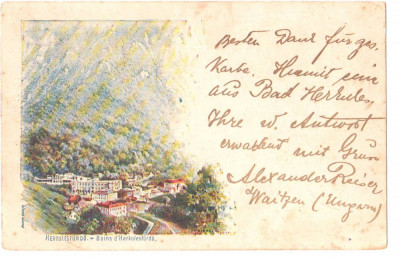 Besten Dank für gas.
Karte. Hiermit ein
aus Bad Herkules,
Ihre w. Antwort
erwartend mit Gruss
Alexander Reiser
Waitzen (Ungarn)
HERKULESFÜRDŐ. – Bains d'Herkulesfürdő.